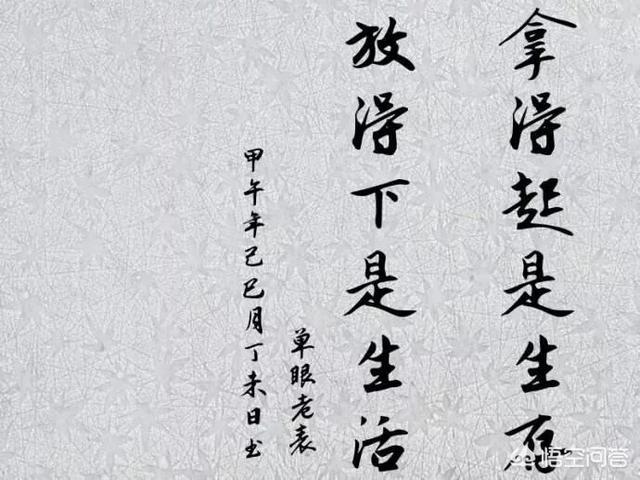 拿得起是生存
放得下是生活
单眼老表
甲午年己巳月丁未日书
悟空问答